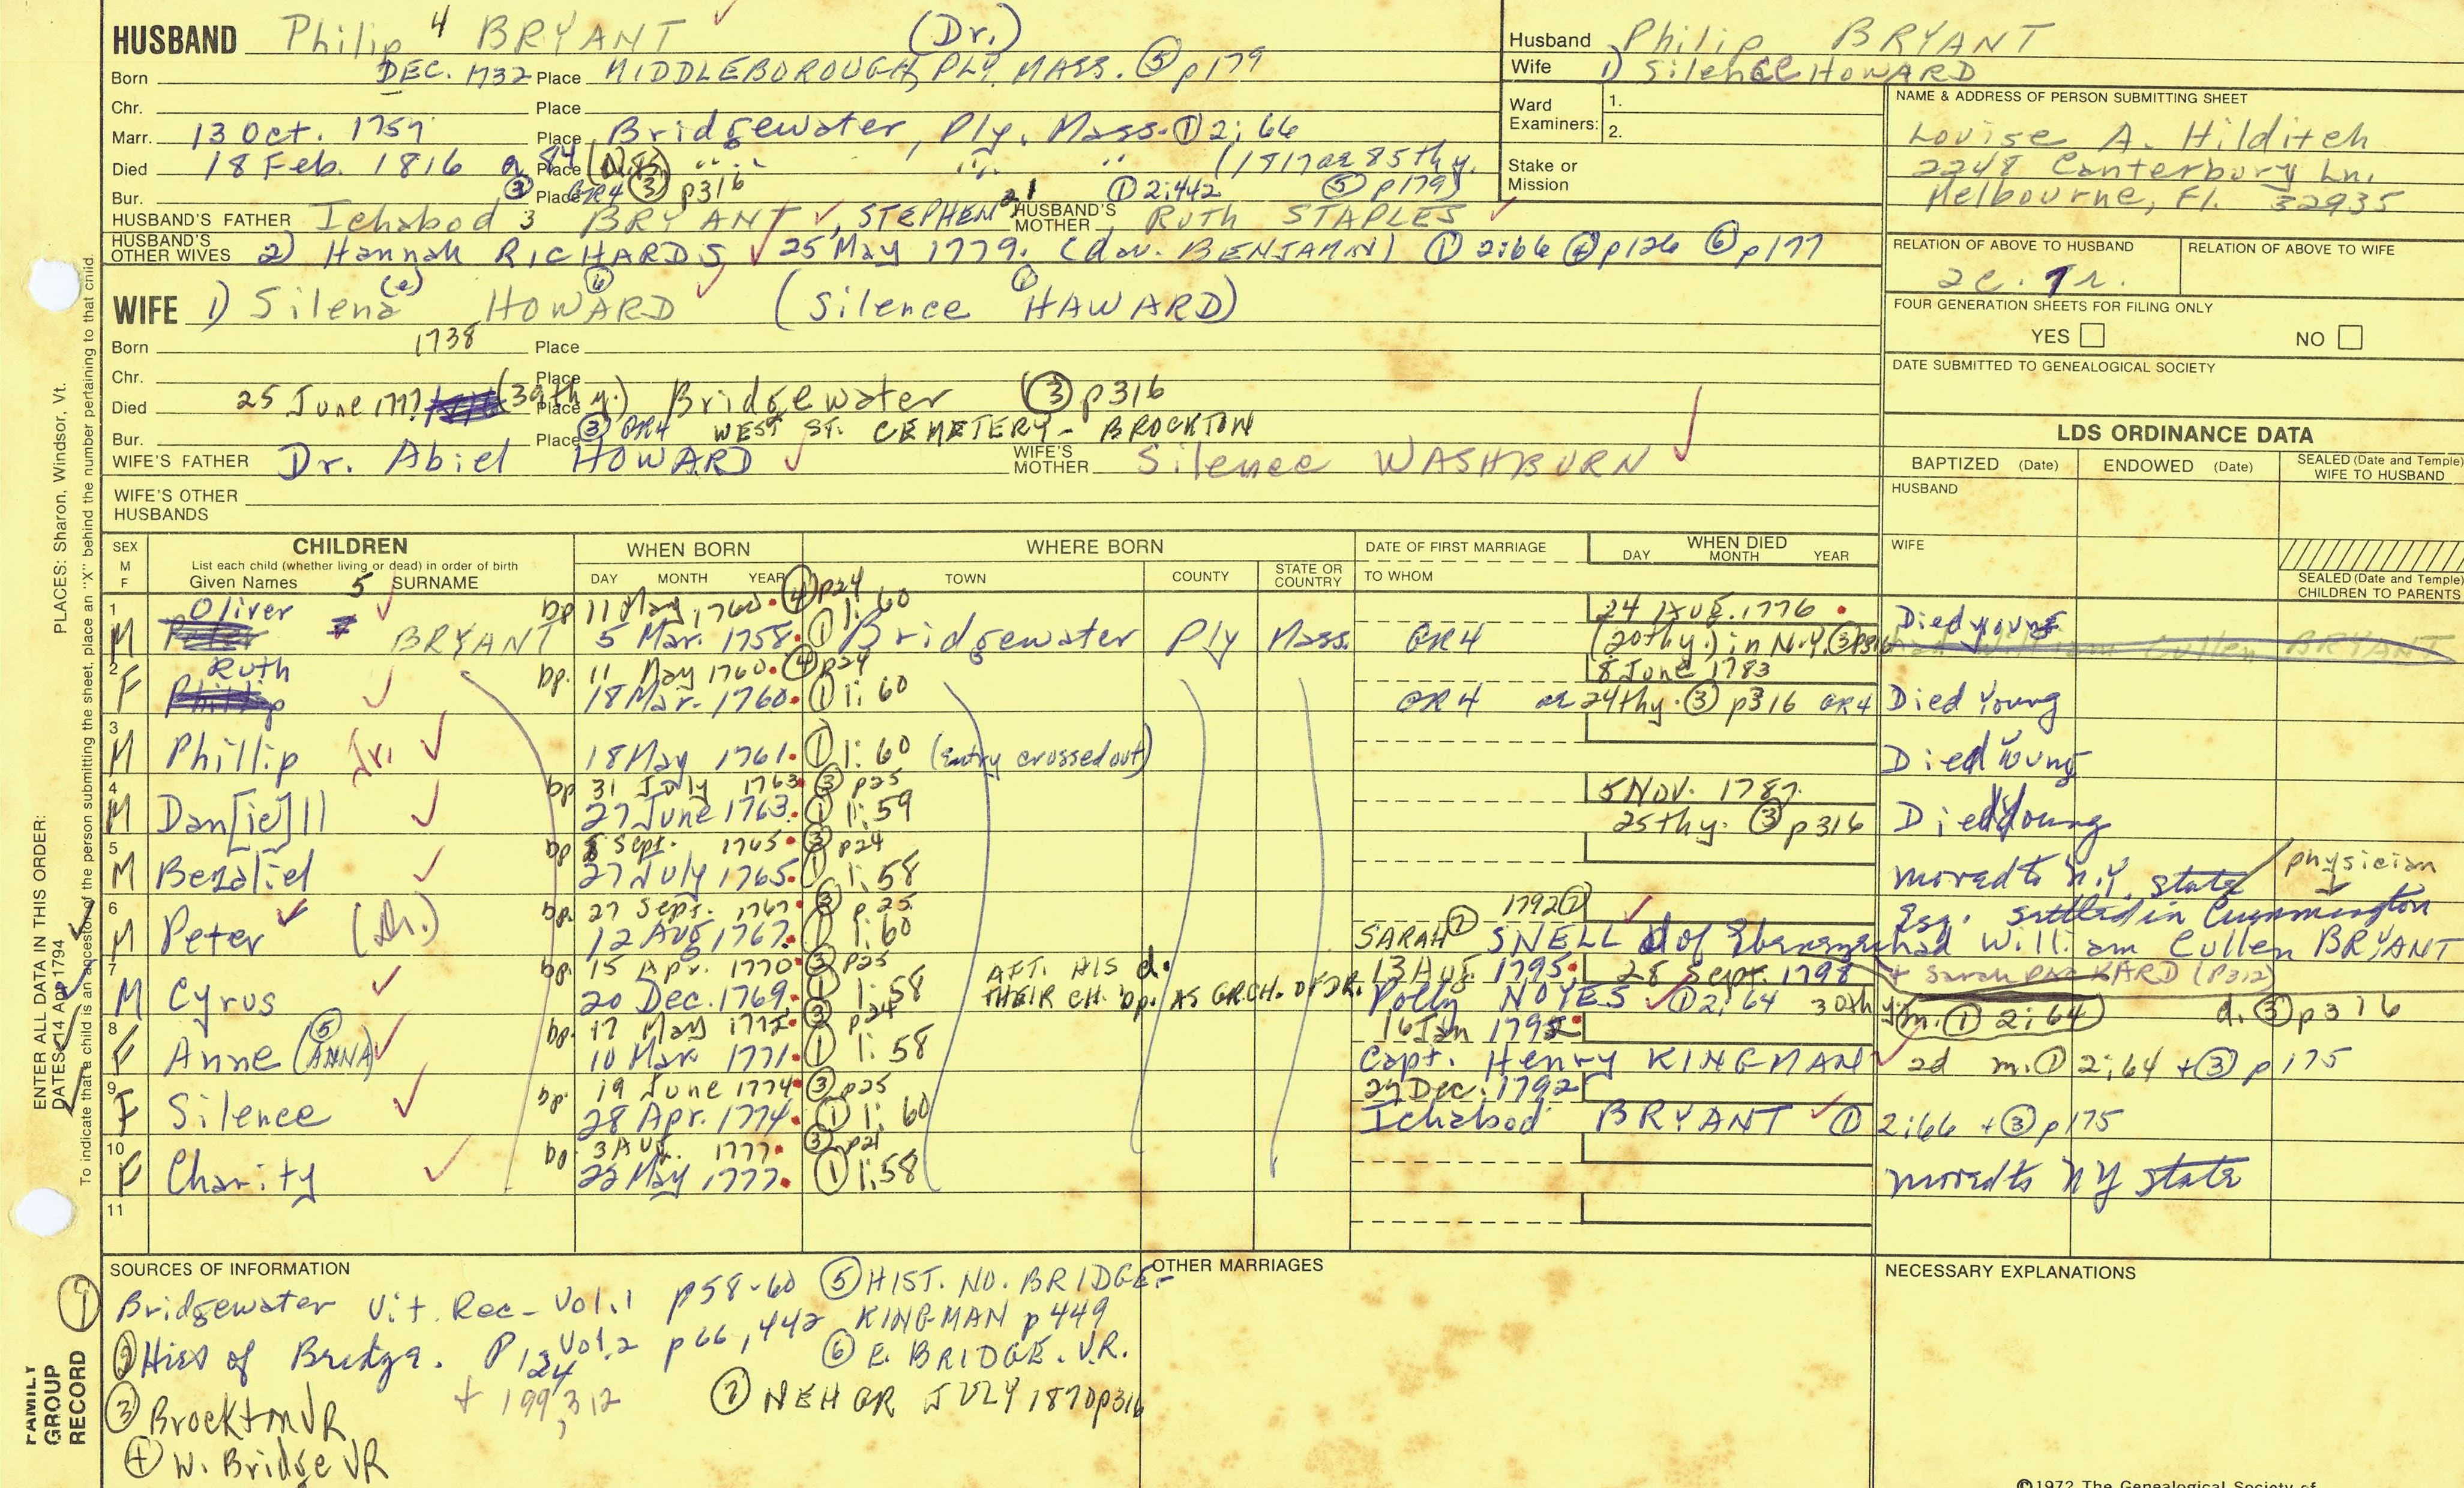 HUSBAND Philip 4 BRYANT (Dr.)
Born DEC. 1732 Place MIDDLEBOROUGH, PLY. MASS. ⑤ p179
Chr. Place
Marr. 13 Oct. 1757 Place Bridgewater, Ply. Mass. ① 2:66
Died 18 Feb. 1816 a 84 Place " " " (1817 ae 85thy.
Bur. ③ Place GR4 ③ p316 ① 2:442 ⑤ p179)
HUSBAND'S FATHER Ichabod 3 BRYANT, STEPHEN 2,1 HUSBAND'S MOTHER Ruth STAPLES
HUSBAND'S OTHER WIVES 2) Hannah RICHARDS 25 May 1779. (dau. BENJAMIN) ① 2:66 ④ p126 ⑥ p177
WIFE 1) Silena (e) HOWARD ⑥ (Silence HAWARD)
Born 1738 Place
Chr. Place
Died 25 June 1777 (39thy.) Place Bridgewater ③ p316
Bur. Place ③ GR4 WEST ST. CEMETERY - BROCKTON
WIFE'S FATHER Dr. Abiel HOWARD WIFE'S MOTHER Silence WASHBURN
WIFE'S OTHER HUSBANDS
Husband Philip BRYANT
Wife 1) Silence HOWARD
Ward Examiners: 1.
2.
Stake or Mission
NAME & ADDRESS OF PERSON SUBMITTING SHEET
Louise A. Hilditch
2248 Canterbury Ln.
Melbourne, Fl. 32935
RELATION OF ABOVE TO HUSBAND RELATION OF ABOVE TO WIFE
2c. 7r.
FOUR GENERATION SHEETS FOR FILING ONLY
YES NO
DATE SUBMITTED TO GENEALOGICAL SOCIETY
LDS ORDINANCE DATA
BAPTIZED (Date) ENDOWED (Date) SEALED (Date and Temple) WIFE TO HUSBAND
HUSBAND
WIFE
SEALED (Date and Temple) CHILDREN TO PARENTS
SEX M F CHILDREN WHEN BORN WHERE BORN DATE OF FIRST MARRIAGE WHEN DIED
List each child (whether living or dead) in order of birth DAY MONTH YEAR
Given Names 5 SURNAME DAY MONTH YEAR TOWN COUNTY STATE OR COUNTRY TO WHOM
1 Oliver bp 11 May, 1760. ④ p24 24 AUG. 1776
M BRYANT 5 Mar. 1758. ① 1:60 Bridgewater Ply Mass. GR4 (20thy.) in N.Y. ③ p316 Died young
had William Cullen BRYANT
2 Ruth bp. 11 May 1760. ④ p24 8 June 1783
F 18 Mar. 1760. ① 1:60 GR4 ae 24thy. ③ p316 GR4 Died Young
3 M Phillip Jr. 18 May 1761. ① 1:60 (Entry crossed out) Died Young
4 bp 31 July 1763 ③ p25 5 Nov. 1787.
M Dan[ie]ll 27 June 1763. ① 1:59 25thy. ③ p316 Died Young
5 bp 8 Sept. 1765. ③ p24
M Bezaliel 27 July 1765. ① 1:58 moved to N.Y. state physician
6 bp. 27 Sept. 1767. ③ p.25 1792 ②
M Peter (Dr.) 12 Aug 1767. ① 1:60 SARAH ② SNELL d of Ebenezer Esq. settled in Cummington
had William Cullen BRYANT
+ Sarah PACKARD (P312)
7 bp. 15 Apr. 1770 ③ p25 AFT. HIS d. 13 Aug 1795. 28 Sept. 1798
M Cyrus 20 Dec. 1769. ① 1:58 THEIR CH. bp. AS GR.CH. OF DR. Polly NOYES ① 2:64 30thy. (m. ① 2:64) d. ③ p316
8 ⑤ bp. 17 May 1772. ③ p24 16 Jan 1792
F Anne (ANNA) 10 Mar. 1771. ① 1:58 Capt. Henry KINGMAN 2d m. ① 2:64 + ③ p175
9 bp. 19 June 1774. ③ p25 27 Dec. 1792
F Silence 28 Apr. 1774. ① 1:60 Ichabod BRYANT ① 2:66 + ③ p175
10 bp. 3 Aug. 1777. ③ p21
F Charity 22 May 1777. ① 1:58 moved to NY state
11
SOURCES OF INFORMATION
① Bridgewater Vit. Rec - Vol. 1 p58-60
Vol. 2 p66, 442
② Hist of Bridge. P 124
+ 199, 312
③ Brockton VR
④ W. Bridge VR
⑤ HIST. NO. BRIDGE-
KINGMAN p449
⑥ E. BRIDGE. V.R.
⑦ NEHGR JULY 1870 p316
OTHER MARRIAGES
NECESSARY EXPLANATIONS
©1972 The Genealogical Society of
PLACES: Sharon, Windsor, Vt.
To indicate that a child is an ancestor of the person submitting the sheet, place an "X" behind the number pertaining to that child.
ENTER ALL DATA IN THIS ORDER:
DATES: 14 Apr 1794
FAMILY
GROUP
RECORD